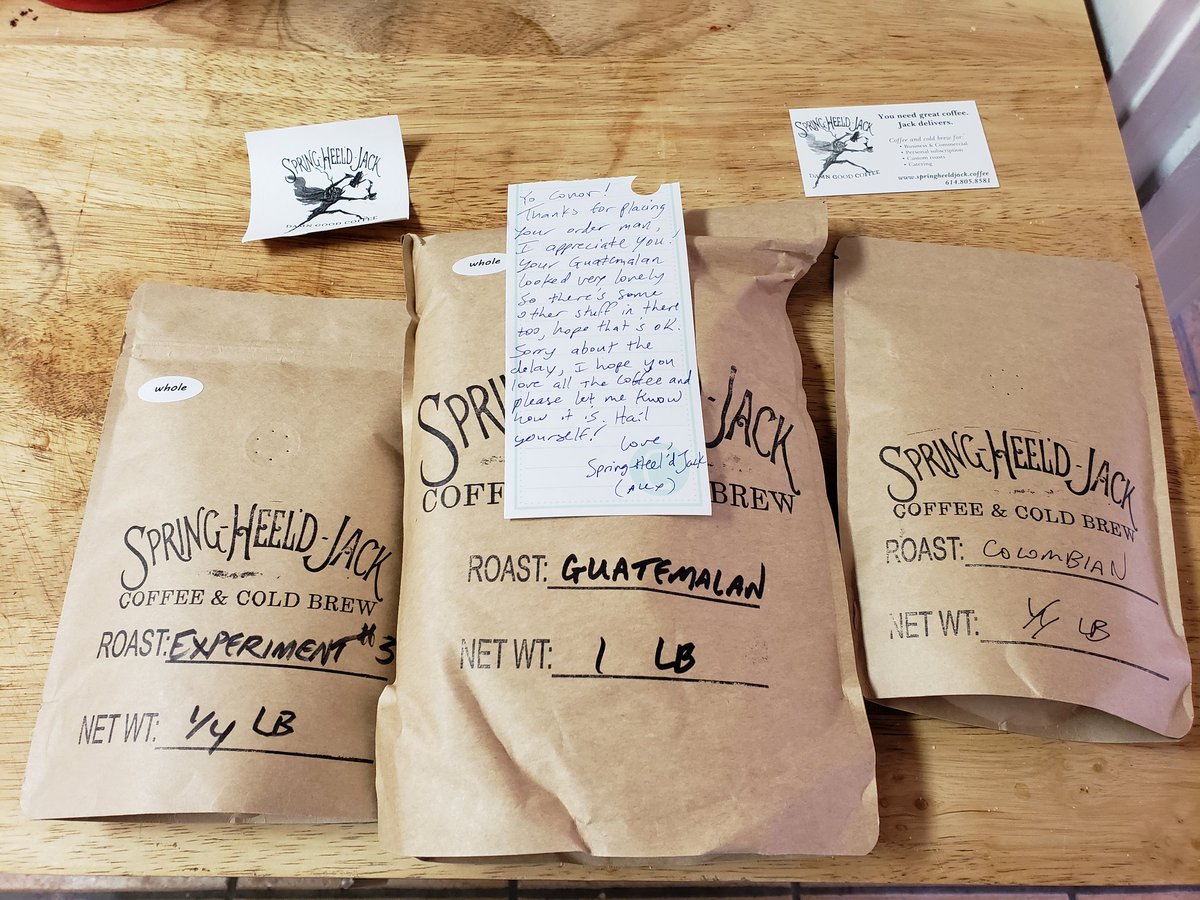 SPRING-HEEL'D JACK
DAMN GOOD COFFEE
SPRING-HEEL'D-JACK
DAMN GOOD COFFEE
You need great coffee.
Jack delivers.
Coffee and cold brew for:
• Business & Commercial
• Personal subscription
• Custom roasts
• Catering
www.springheeldjack.coffee
614.805.8581
Yo Conor!
Thanks for placing
your order man,
I appreciate you.
Your Guatemalan
looked very lonely
so there's some
other stuff in there
too, hope that's ok.
Sorry about the
delay, I hope you
love all the coffee and
please let me know
how it is. Hail
yourself!
Love,
Spring-Heel'd Jack
(Alex)
whole
SPRING-HEEL'D-JACK
COFFEE & COLD BREW
ROAST: EXPERIMENT #3
NET WT: 1/4 LB
whole
SPRI JACK
COFF BREW
ROAST: GUATEMALAN
NET WT: 1 LB
SPRING-HEEL'D-JACK
COFFEE & COLD BREW
ROAST: COLOMBIAN
NET WT: 1/4 LB